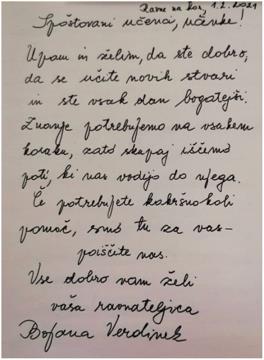 Ravne na Kor., 1.2.2021
Spoštovani učenci, učenke!
Upam in želim, da ste dobro,
da se učite novih stvari
in ste vsak dan bogatejši.
Znanje potrebujemo na vsakem
koraku, zato skupaj iščemo
poti, ki nas vodijo do njega.
Če potrebujete kakršnokoli
pomoč, smo tu za vas-
poiščite nas.
Vse dobro vam želi
vaša ravnateljica
Bojana Verdinek